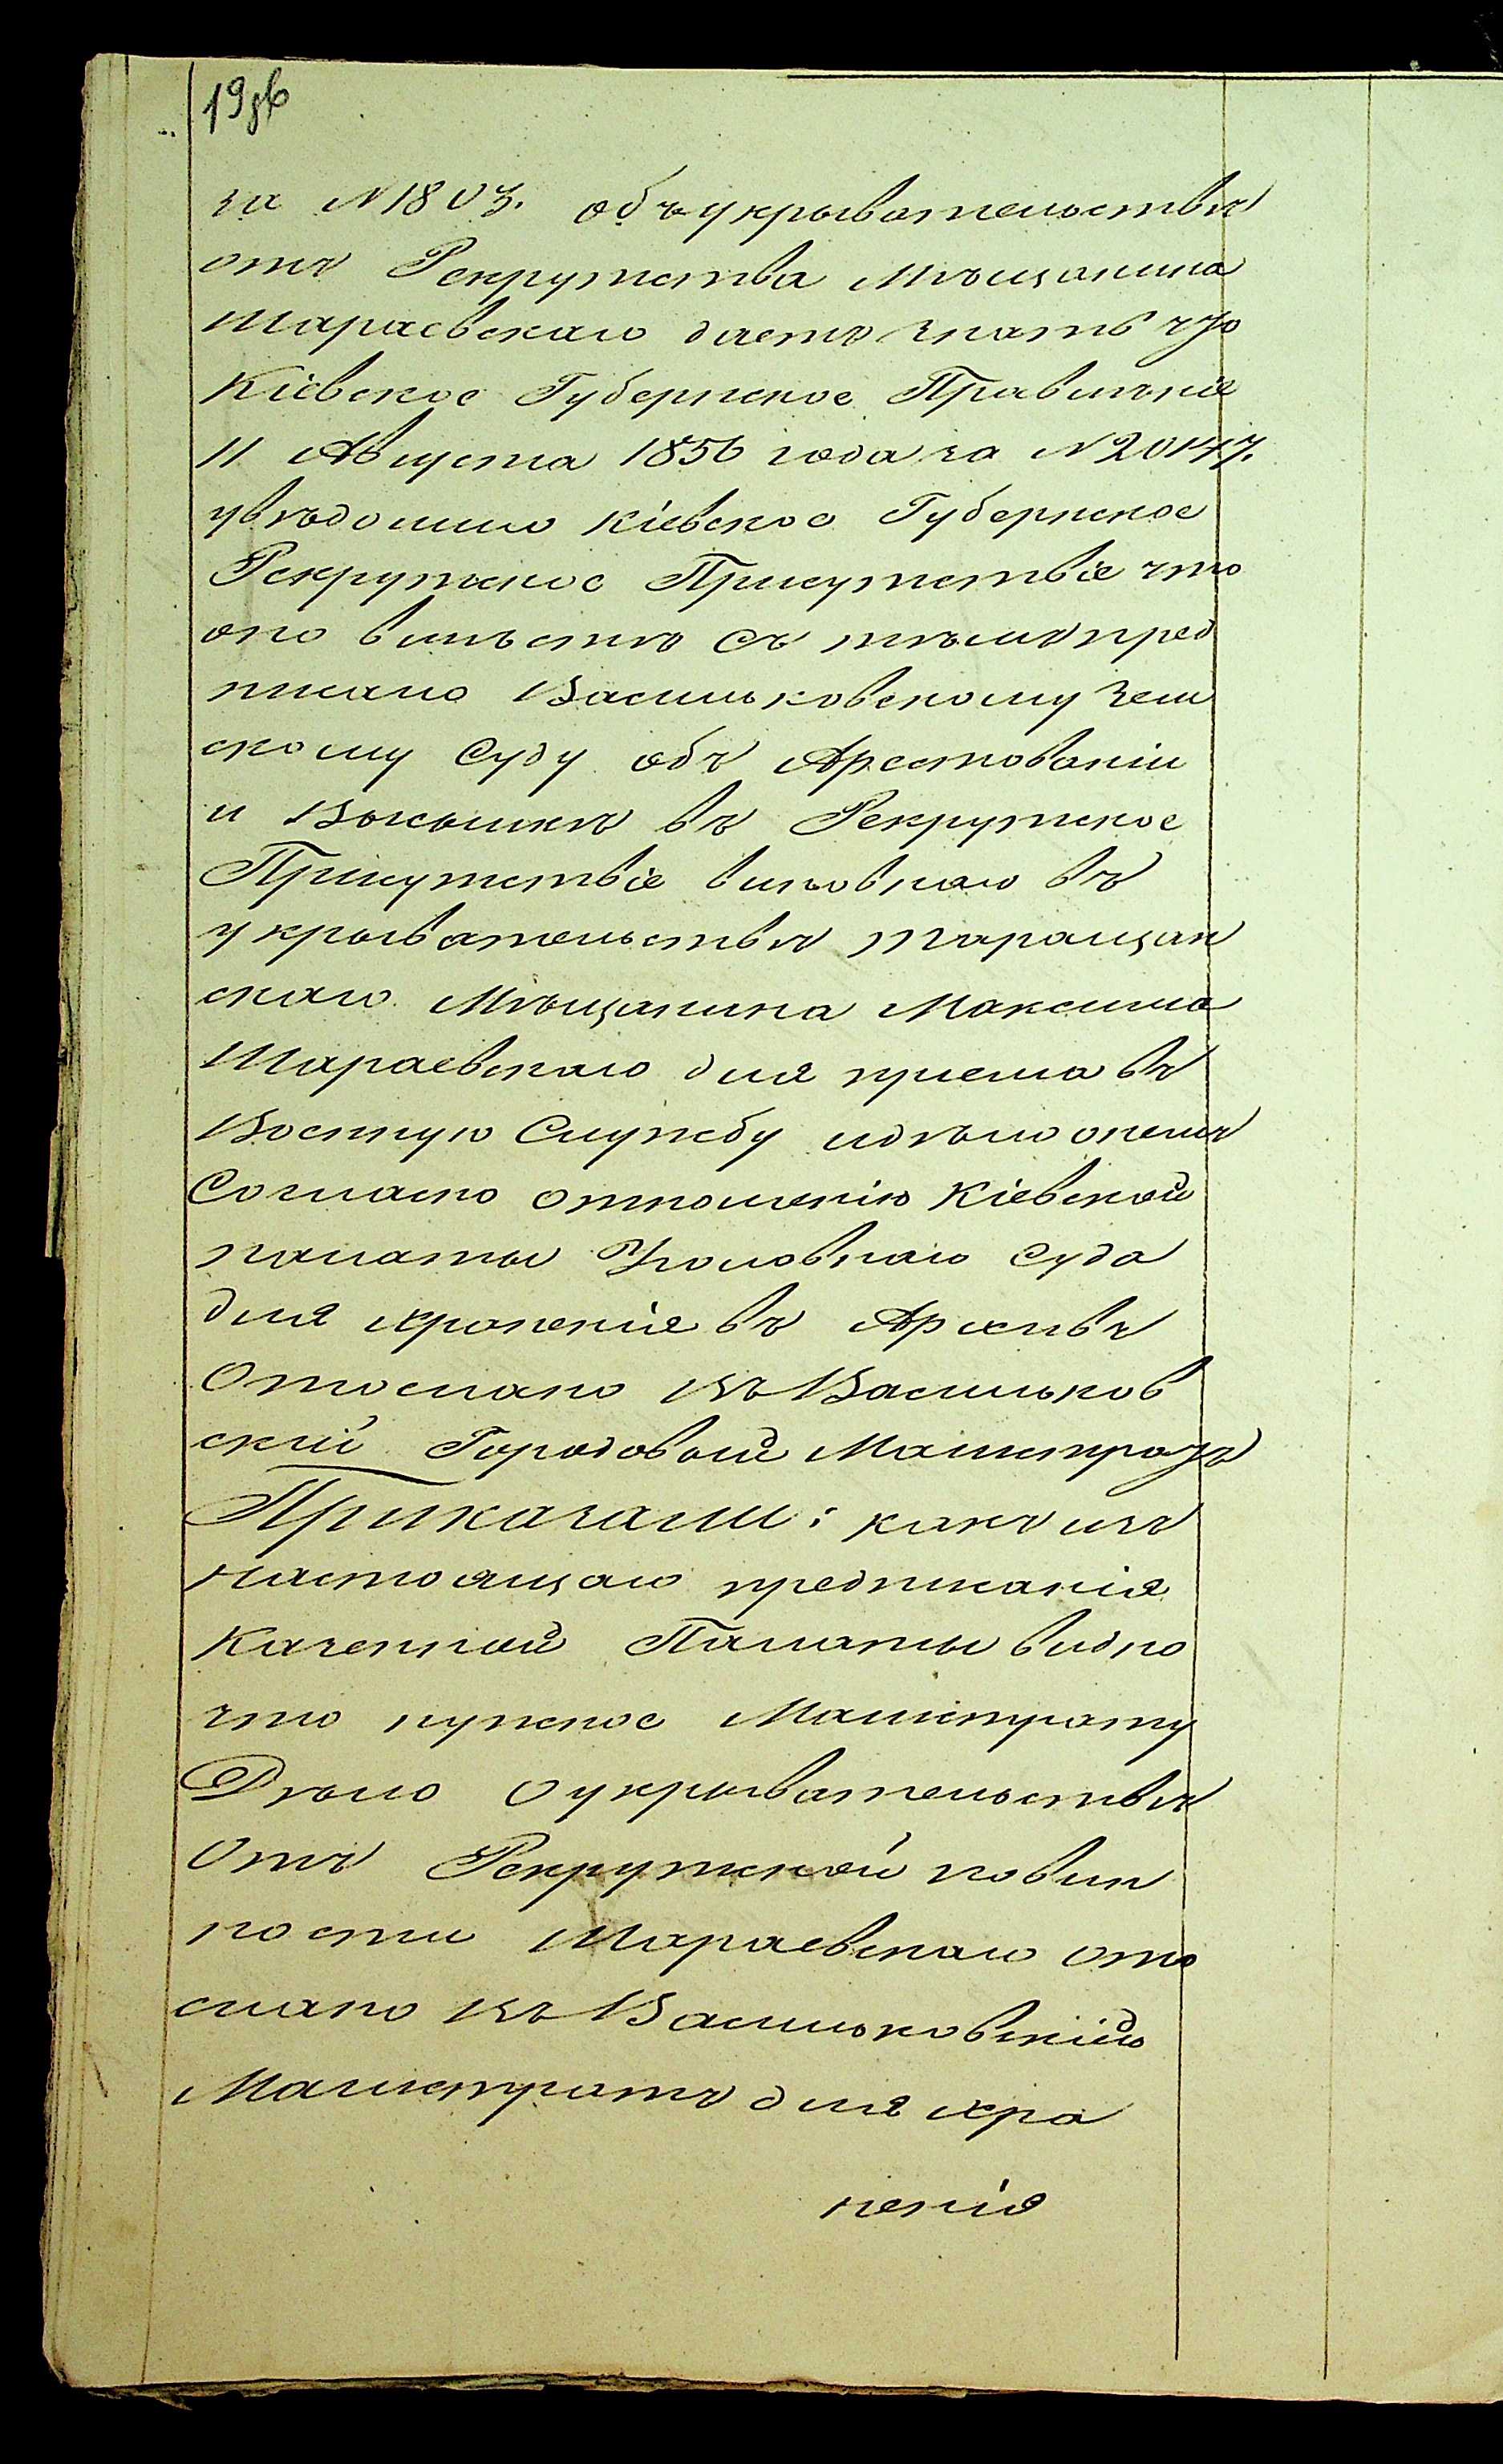 19об
за N 1803. объ укрывательствѣ
отъ Рекрутства Мѣщанина
Шараевскаго даетъ знать что
Кіевское Губернское Правленіе
11 Августа 1856 года за N 20147.
увѣдомило Кіевское Губернское
Рекрутское Присутствіе что
оно вмѣстѣ съ тѣмъ пред
писало Васильковскому Зем
скому Суду объ Арестованіи
и Высылкѣ въ Рекрутское
Присутствіе виновнаго въ
укрывательствѣ Таращан
скаго Мѣщанина Максима
Шараевскаго для пріема въ
Военную Службу и дѣло о немъ
Согласно отношенію Кіевской
палаты Уголовнаго Суда
для храненія въ Архивѣ
Отослано въ Васильков
скій Городовый Магистратъ
Приказали: какъ изъ
настоящаго предписанія
Казенной Палаты видно
что нужное Магистрату
Дѣло о укрывательствѣ
Отъ Рекрутской повин
ности Шараевскаго ото
слано въ Васильковскій
Магистратъ для хра
ненія